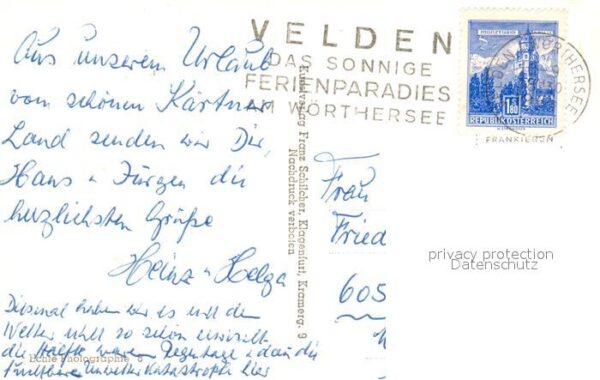 Aus unserem Urlaub
vom schönen Kärtner
Land senden wir Dir,
Hans u Jürgen die
herzlichsten Grüße
Heinz u Helga
Diesmal haben wir es mit dem
Wetter nicht so schön erwischt
die Hälfte waren Regentage u dann die
furchtbare Unwetterkatastrophe hier
Echte Photographie
VELDEN
DAS SONNIGE
FERIENPARADIES
AM WÖRTHERSEE
Kunstverlag Franz Schilcher, Klagenfurt, Kramerg. 9
Nachdruck verboten
1.80
REPUBLIK ÖSTERREICH
WÖRTHERSEE
FRANKIEREN
Frau
Fried
605
privacy protection
Datenschutz